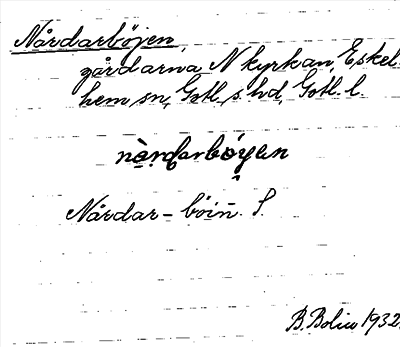 Nårdarbøjen,
gårdarna N kyrkan, Eskel-
hem sn, Gotl. s. hd, Gotl. l.
nȧrdarbǫyen
Nårdar-böin̄. S.
B. Bolin 1932.